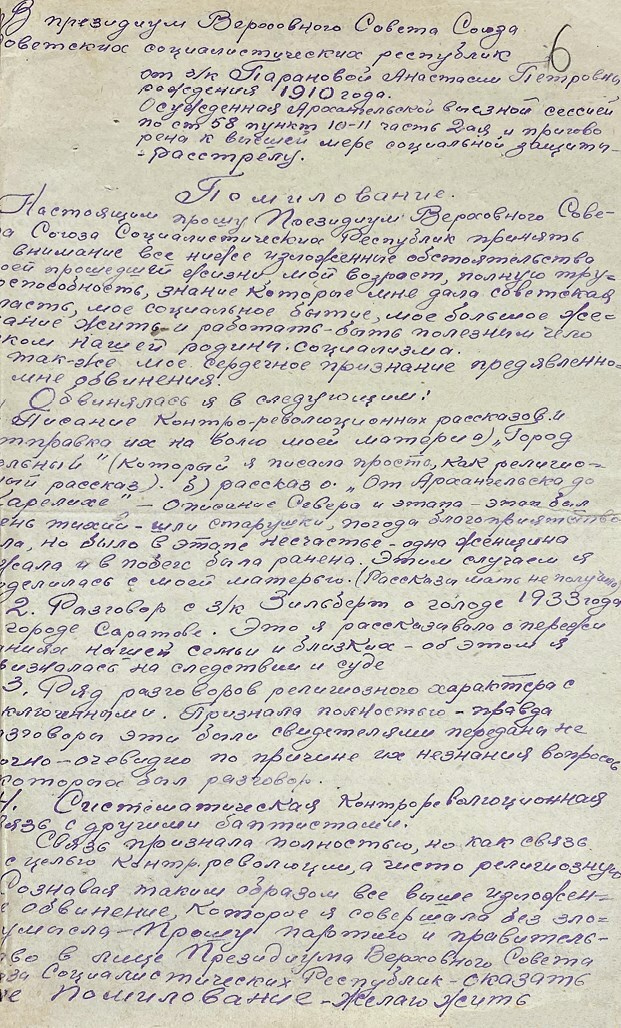 В президиум Верховного Совета Союза
оветских социалистических республик
6
от з/к Парановой Анастасии Петровны
рождения 1910 года.
Осужденная Архангельской выездной сессией
по ст 58 пункт 10-11 часть 2ая и пригово
рена к высшей мере социальной защиты-
-расстрелу.
Помилование.
Настоящим прошу Президиум Верховного Сове-
а Союза Социалистических Республик принять
внимание все ниже изложенние обстоятельства
оей прошедшей жизни, мой возраст, полную тру-
оспособность, знание которые мне дала советская
ласть, мое социальное бытие, мое большое же-
ание жить и работать-быть полезним чело
ком нашей родины. социализма.
так-же мое сердечное признание предявленно-
мне обвинения!
Обвинялась я в следующим:
Писание контро-революционных рассказов и
тправка их на волю моей матери а) „Город
ельный" (который я писала просто, как религио-
ный рассказ). б) рассказ о. „От Архангельска до
Карелихе" - описание Севера и этапа - этап был
ень тихий - шли старушки, погода благоприятство
ла, но было в этапе несчастье - одна женщина
жала и в побеге была ранена. Этим случаем я
оделилась с моей матерью. (Рассказы мать не получила)
2. Разговор с з/к Зильберт о голоде 1933 года
городе Саратове. Это я рассказывала о пережи
ниях нашей семьи и близких - об этом я
ризналась на следствии и суде
3. Ряд разговоров религиозного характера с
ключенными. Признала полностью - правда
азговоры эти были свидетелями переданы не
очно - очевидно по причине их незнания вопросов
которых был разговор.
4. Систематическая контрореволюционная
вязь с другими баптистами.
Связь признала полностью, но как связь
с целью контр.революции, а чисто религиозную
Рознавая таким образом все выше изложен-
е обвинение, которое я совершала без зло-
умысла - Прошу партию и правитель-
тво в лице Президиума Верховного Совета
юза Социалистических Республик - оказать
не Помилование - желаю жить